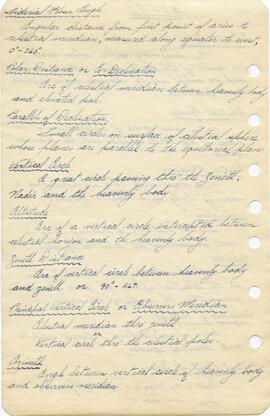 Siderial Hour Angle
Angular distance from first point of aries to
celestial meridian, measured along equator to west,
0°-360°.
Polar Distance or Co-Declination
Arc of celestial meridian between heavenly body
and elevated pole.
Parallels of Declination.
Small circles on surface of celestial sphere
whose planes are parallel to the equitorial plane
Vertical Circle
A great circle passing thru the Zenith,
Nadir and the heavenly body
Altitude
Arc of a vertical circle intercepted between
celestial horizon and the heavenly body.
Zenith Distance
Arc of vertical circle between heavenly body
and zenith or 90°-alt.
Principal Vertical Circle or Observers Meridian
Celestial meridian thru zenith
or
Vertical circle thru the celestial poles.
Azimuth
Angle between vertical circle of heavenly body
and observers meridian